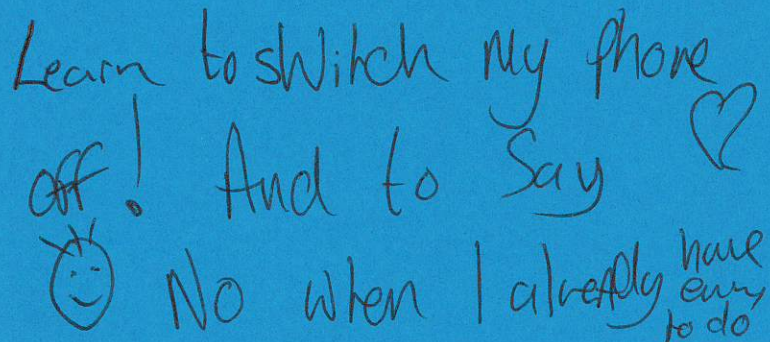 Learn to switch My phone
off! And to Say
No when I already have
to do